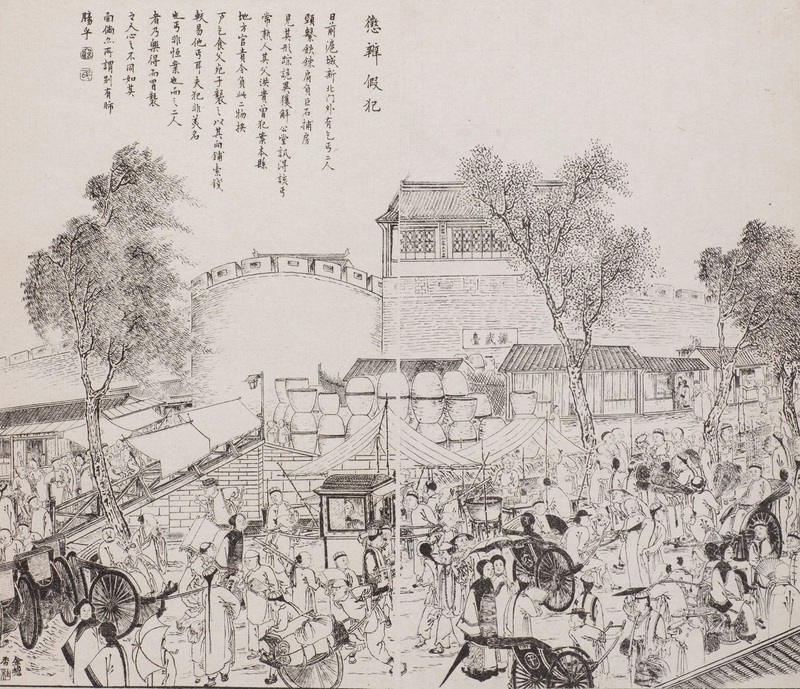 懲辦假犯
日前滬城新北門外有乞丐二人
頸繫鉄鍊肩負巨石捕房
見其形踪詭異獲解公堂訊得該丐
常熟人其父洪貴曾犯案本縣
地方官責令負此二物挨
戶乞食父死子襲之以其向鋪索錢
較易他丐耳夫犯非美名
也丐非恒業也而之二人
者乃樂得而冒襲
之人心之不同如其
面倘亦所謂別有肺
腸乎
演武臺